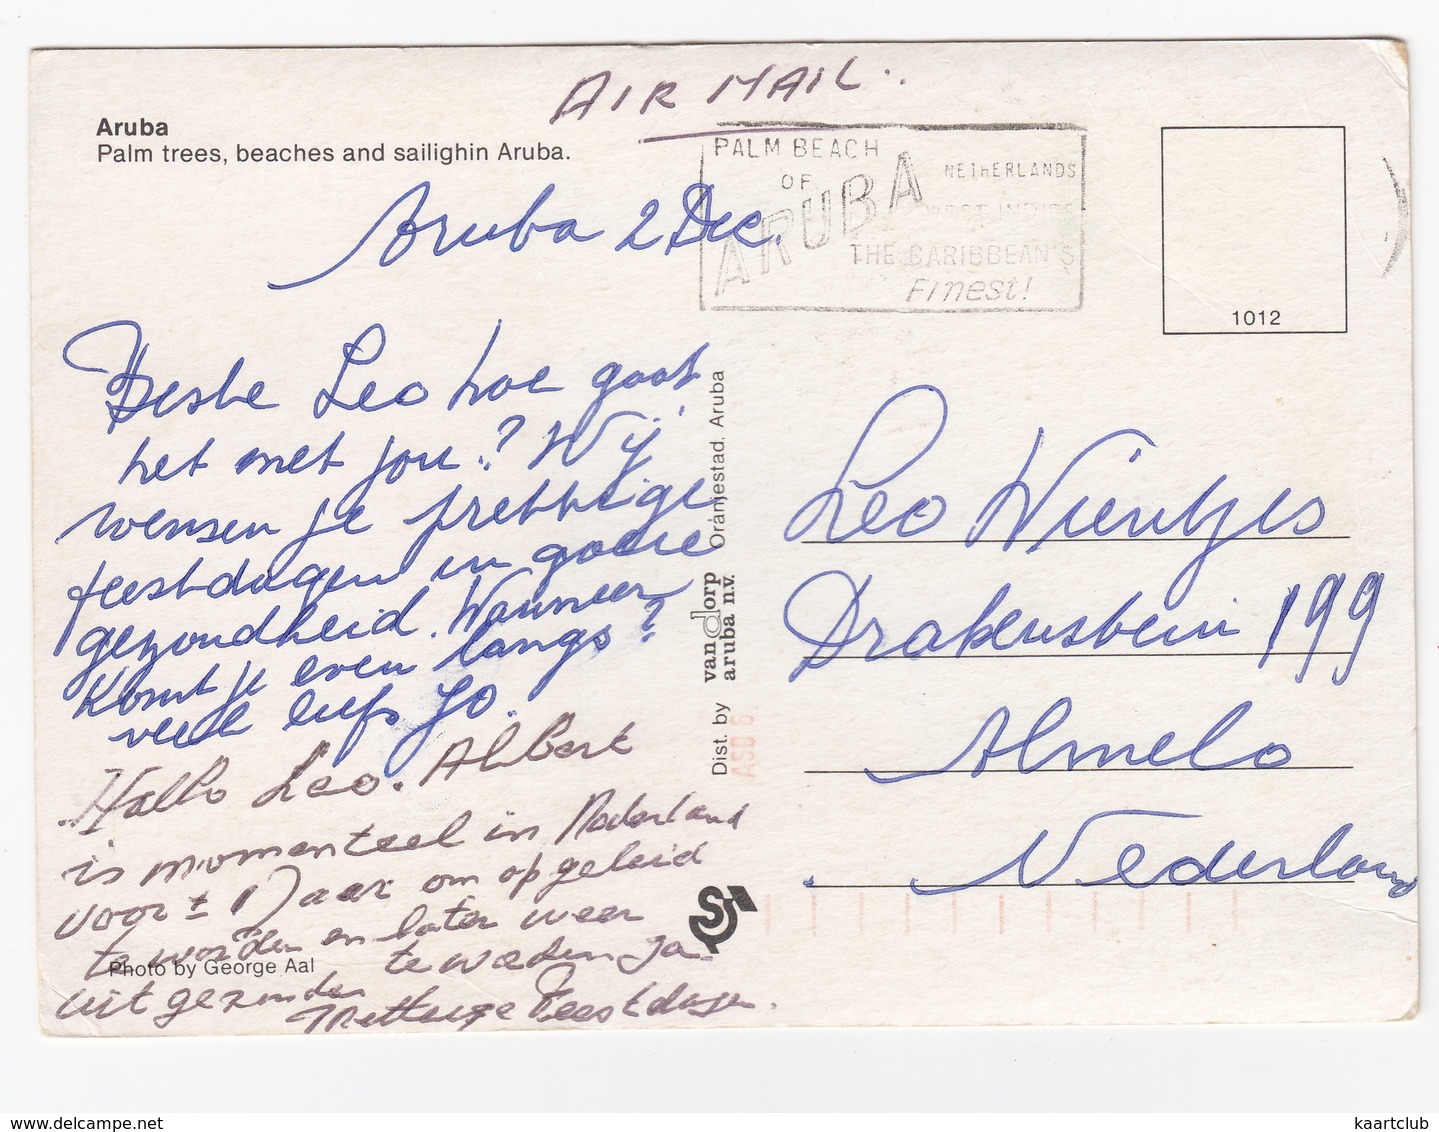 AIR MAIL..
Aruba
Palm trees, beaches and sailighin Aruba.
PALM BEACH
OF
ARUBA
NETHERLANDS
WEST INDIES
THE CARIBBEAN'S
Finest!
1012
Aruba 2 Dec.
Beste Leo hoe gaat
het met jou? Wij
wensen je prettige
feestdagen in goede
gezondheid. Wanneer
komt je even langs?
veel liefs Jo.
Hallo Leo. Albert
is momenteel in Nederland
voor ± 1 Jaar om opgeleid
te worden en later weer
uitgezonden te worden ja.
Prettige Feestdagen.
Photo by George Aal
Dist. by van Dorp aruba n.v. Oranjestad. Aruba
ASD 6
Leo Wientjes
Drakenstein 199
Almelo
Nederland
delcampe.net
kaartclub